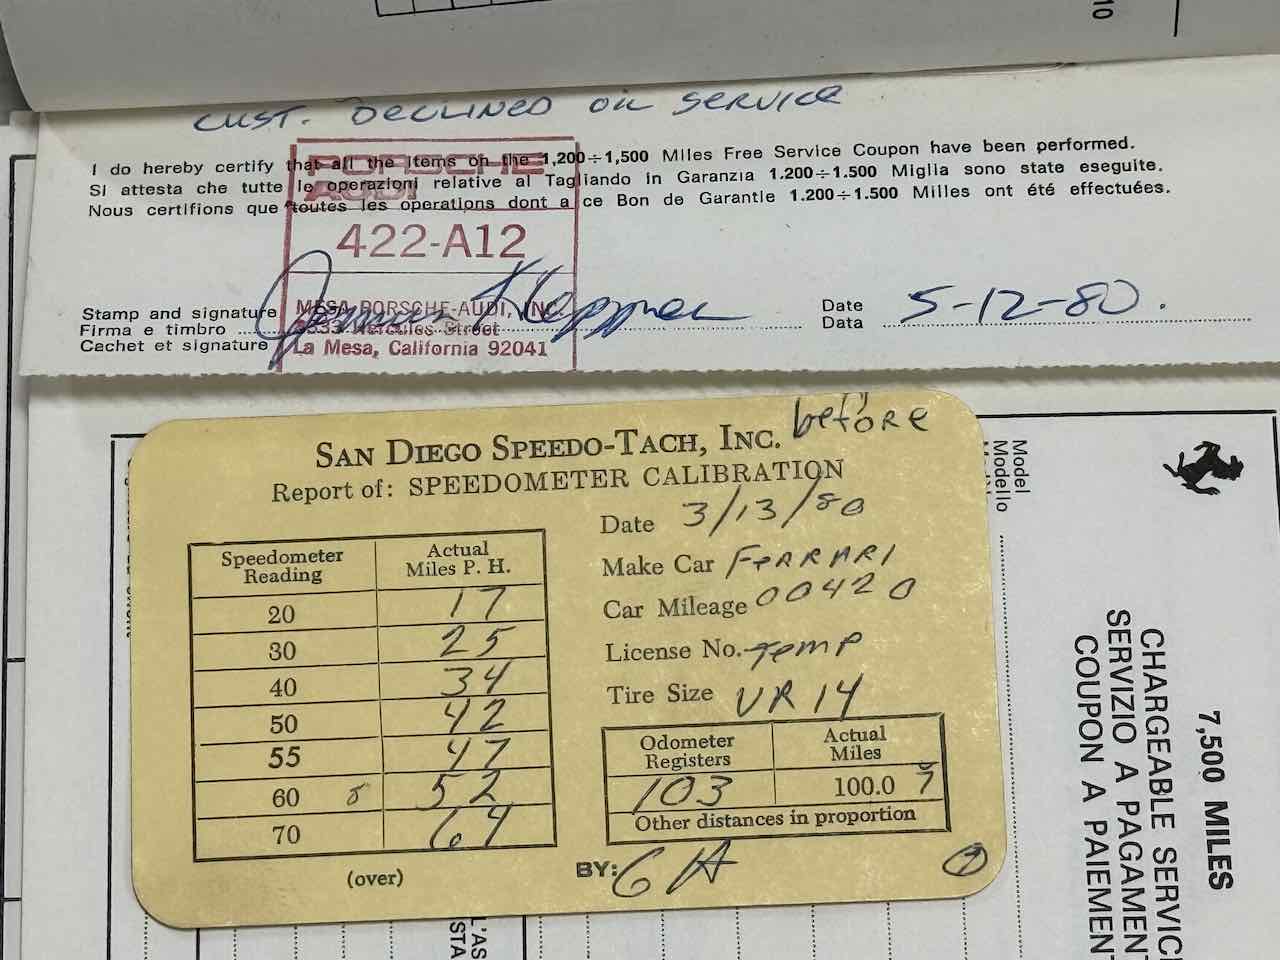 10
CUST. DECLINED OIL SERVICE
I do hereby certify that all the items on the 1,200÷1,500 Miles Free Service Coupon have been performed.
Si attesta che tutte le operazioni relative al Tagliando in Garanzia 1.200÷1.500 Miglia sono state eseguite.
Nous certifions que toutes les operations dont a ce Bon de Garantie 1.200÷1.500 Milles ont été effectuées.
PORSCHE
AUDI
422-A12
MESA PORSCHE-AUDI, INC.
Hercules Street
La Mesa, California 92041
Stamp and signature
Firma e timbro
Cachet et signature
Date
Data
5-12-80.
before
SAN DIEGO SPEEDO-TACH, INC.
Report of: SPEEDOMETER CALIBRATION
Date 3/13/80
Make Car FERRARI
Car Mileage 00420
License No. Temp
Tire Size VR 14
Speedometer Reading Actual Miles P. H.
20 17
30 25
40 34
50 42
55 47
60 52
70 64
Odometer Registers Actual Miles
103 100.0
Other distances in proportion
(over)
BY: GA
Model
Modello
7,500 MILES
CHARGEABLE SERVIC
SERVIZIO A PAGAMEN
COUPON A PAIEMEN
L'AS
STA